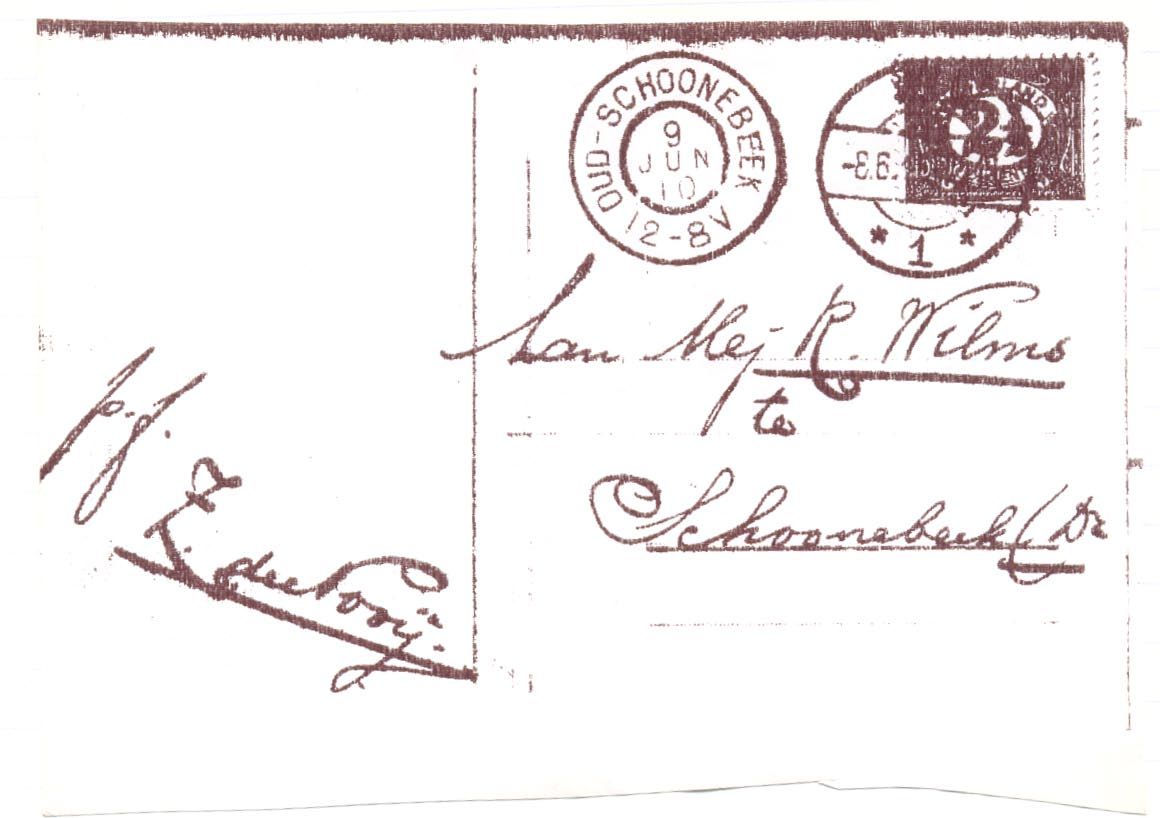 OUD-SCHOONEBEEK
9
JUN
10
12-8V
-8.6.
* 1 *
2½
CENT
Aan Mej R. Wilms
te
Schoonebeek (Dr
p.f.
Z. de Nooij.